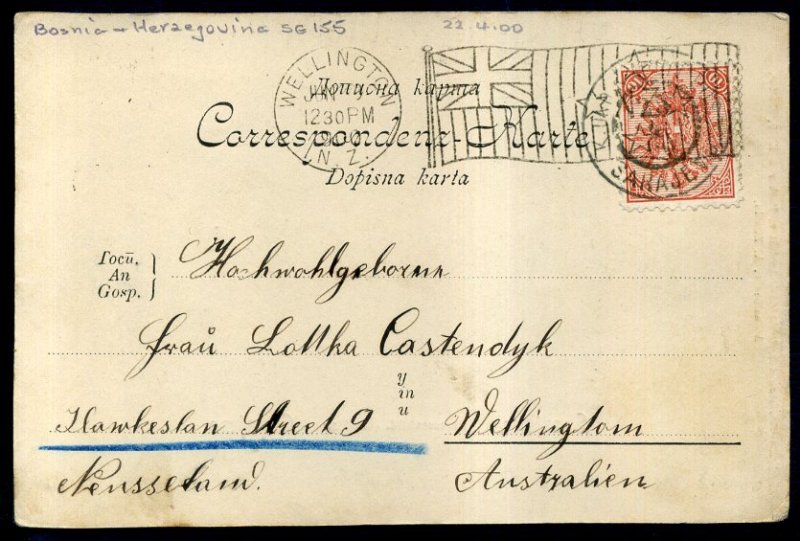 Bosnia - Herzegovina SG 155 22.4.00
WELLINGTON
JUN
1230PM
1900
N.Z.
SARAJEVO
Дописна карта
Correspondenz-Karte
Dopisna karta
Госп.
An
Gosp.
Hochwohlgeborne
Frau Lottka Castendyk
у
in
u
Hawkestan Street 9 Wellingtom
Neusseeland. Australien